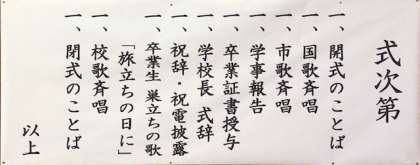 式次第
一、開式のことば
一、国歌斉唱
一、市歌斉唱
一、学事報告
一、卒業証書授与
一、学校長 式辞
一、祝辞・祝電披露
一、卒業生 巣立ちの歌
「旅立ちの日に」
一、校歌斉唱
一、閉式のことば
以上